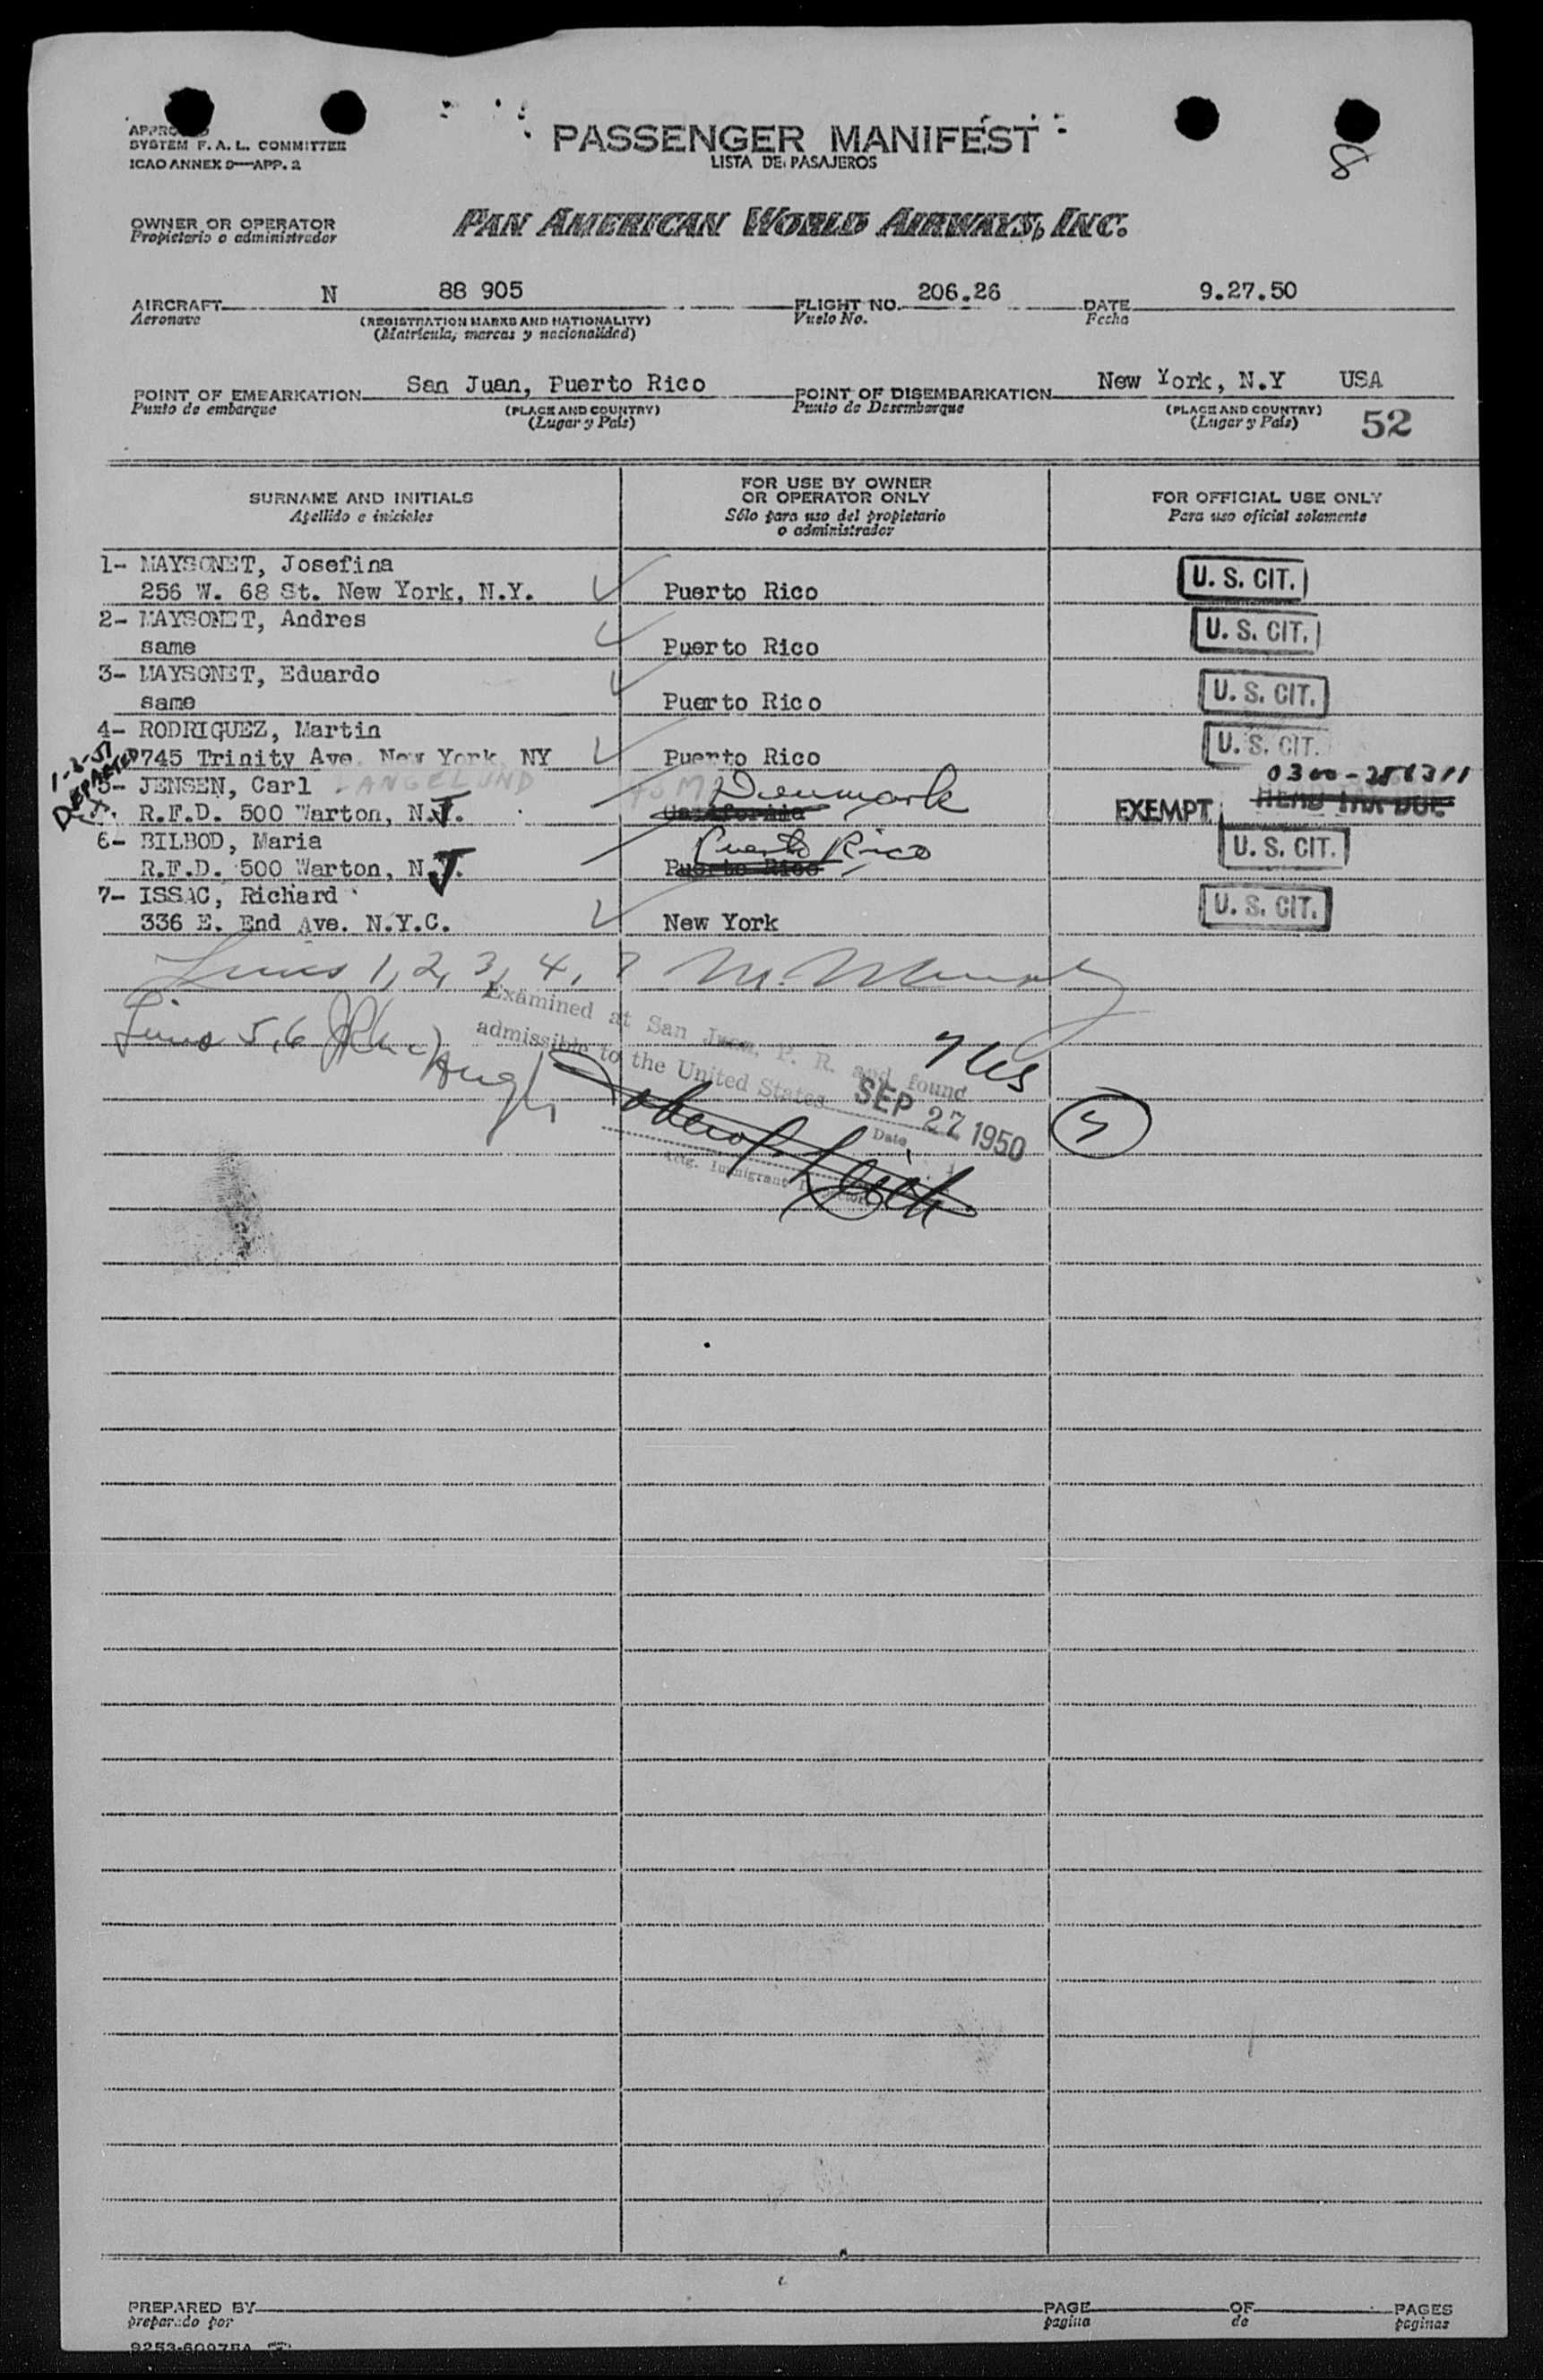 APPROVED
SYSTEM F. A. L. COMMITTEE
ICAO ANNEX 9—APP. 2
PASSENGER MANIFEST
LISTA DE PASAJEROS
8
OWNER OR OPERATOR
Propietario o administrador
PAN AMERICAN WORLD AIRWAYS, INC.
AIRCRAFT N 88 905 FLIGHT NO. 206.26 DATE 9.27.50
Aeronave (REGISTRATION MARKS AND NATIONALITY) Vuelo No. Fecha
(Matrícula, marcas y nacionalidad)
POINT OF EMBARKATION San Juan, Puerto Rico POINT OF DISEMBARKATION New York, N.Y USA
Punto de embarque (PLACE AND COUNTRY) Punto de Desembarque (PLACE AND COUNTRY)
(Lugar y País) (Lugar y País) 52
SURNAME AND INITIALS
Apellido e iniciales
FOR USE BY OWNER
OR OPERATOR ONLY
Sólo para uso del propietario
o administrador
FOR OFFICIAL USE ONLY
Para uso oficial solamente
1- MAYSONET, Josefina
256 W. 68 St. New York, N.Y. Puerto Rico U. S. CIT.
2- MAYSONET, Andres
same Puerto Rico U. S. CIT.
3- MAYSONET, Eduardo
same Puerto Rico U. S. CIT.
4- RODRIGUEZ, Martin
745 Trinity Ave. New York NY Puerto Rico U. S. CIT.
1-3-51
DEPARTED
5- JENSEN, Carl - ANGELUND Denmark
R.F.D. 500 Warton, N.J. California EXEMPT HEAD TAX DUE
6- BILBOD, Maria Puerto Rico
R.F.D. 500 Warton, N.J. Puerto Rico U. S. CIT.
7- ISSAC, Richard
336 E. End Ave. N.Y.C. New York U. S. CIT.
Lines 1, 2, 3, 4, 7 M.
Lines 5, 6
Examined at San Juan, P. R. and found
admissible to the United States
SEP 27 1950
Date
Actg. Immigrant Inspector
PREPARED BY PAGE OF PAGES
preparado por pagina de paginas